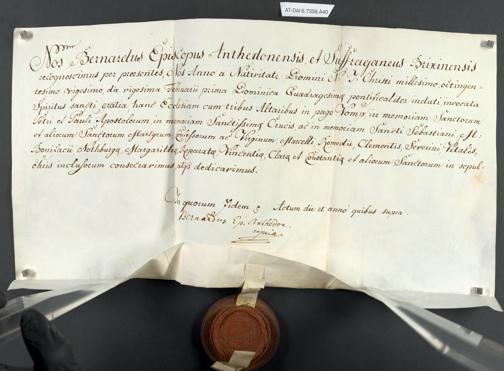 AT-DAI-6.7358.A40
Nos Bernardus Episcopus Anthedonensis, et Suffraganeus Brixinensis
recognoscimus per praesentes, Nos Anno a Nativitate Domini N. J. Christi millesimo octingen-
tesimo vigesimo, die vigesima Februarii prima Dominica Quadragesimae pontificaliter induti, invocata
Spiritus sancti gratia hanc Ecclesiam cum tribus Altaribus in pago in memoriam Sanctorum
Petri et Pauli Apostolorum in memoriam Sanctissimae Crucis ac in memoriam Sancti Sebastiani M.
et aliorum Sanctorum Martyrum Confessorum ac Virginum, Marcelli Romedii, Clementis, Severini Vitalis,
Bonifacii Nothburgae, Margaritae, Reparatae, Vincentiae, Clarae et Constantiae et aliorum Sanctorum in sepul-
chris inclusorum consecravimus, atque dedicavimus.
In quorum Fidem Actum die et anno quibus supra.
Bernardus Ep. Anthedon.
mpria